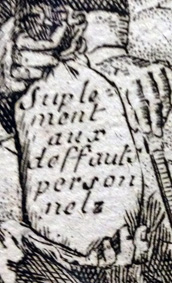 Suple
ment
aux
deffauts
person
nelz